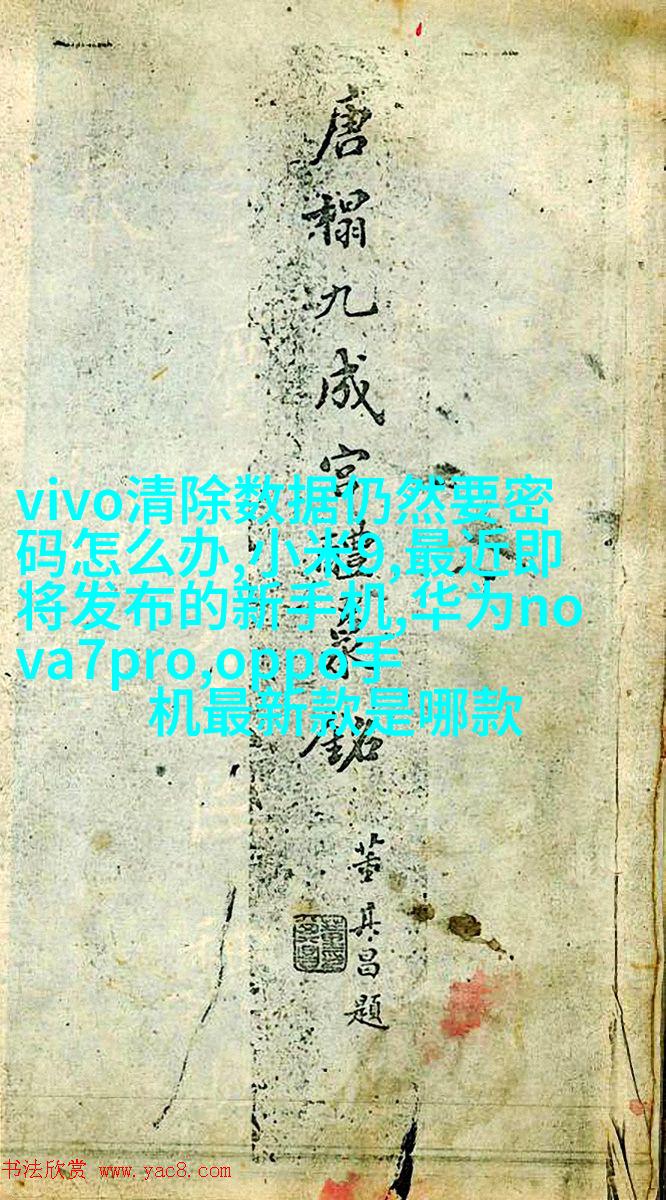 唐榻九成宮醴泉銘
董其昌題
vivo清除数据仍然要密
码怎么办,小米9,最近即
将发布的新手机,华为no
va7pro,oppo手
机最新款是哪款
书法欣赏 www.yac8.com